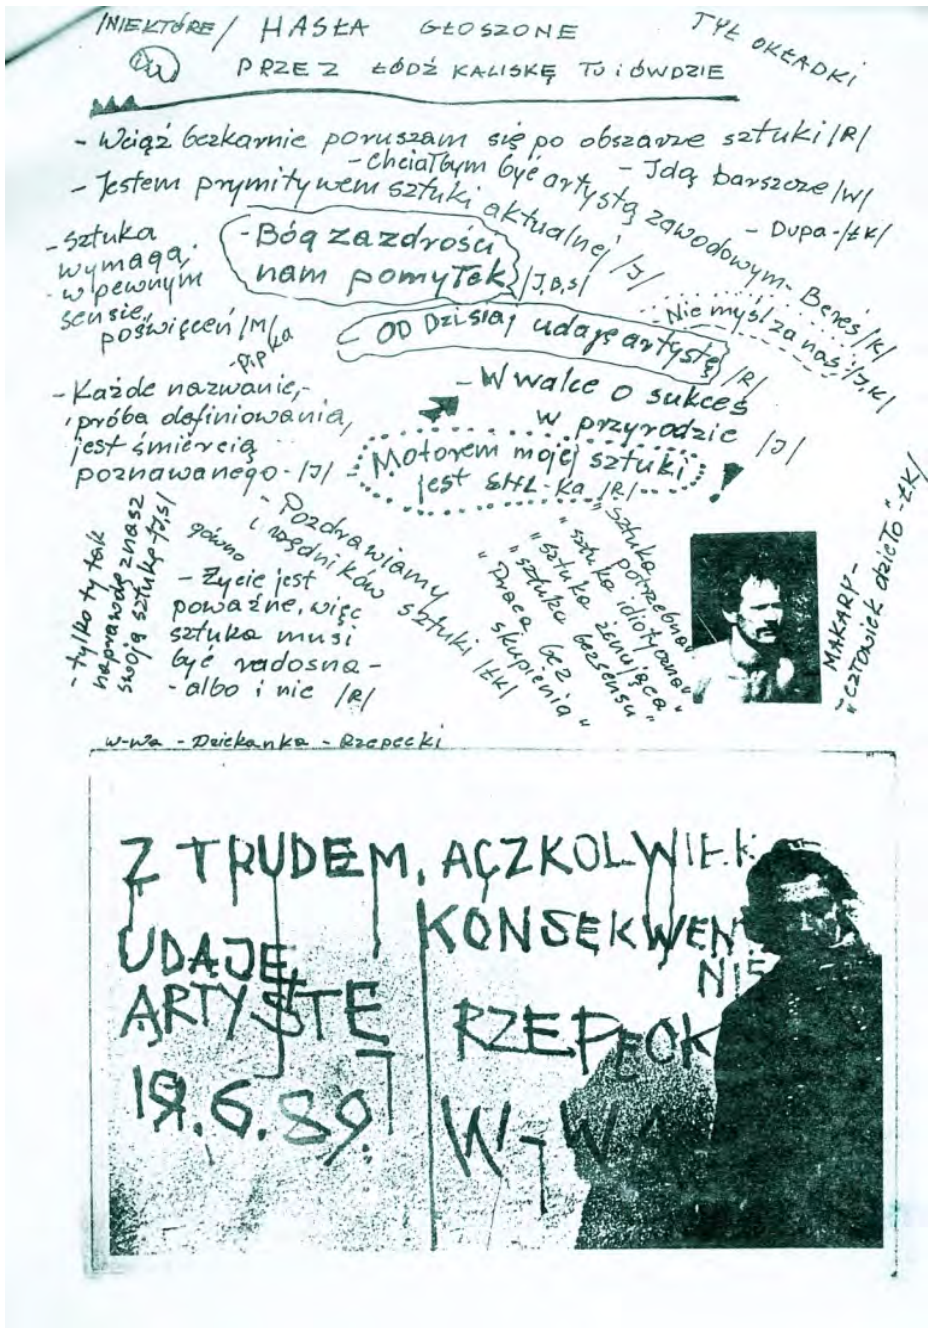 /NIEKTÓRE/ HASŁA GŁOSZONE
TYŁ OKŁADKI
PRZEZ ŁÓDŹ KALISKĘ TU i ÓWDZIE
- Wciąż bezkarnie poruszam się po obszarze sztuki /R/
- Chciałbym być artystą zawodowym - Bereś /K/
- Idą barszcze /W/
- Jestem prymitywem sztuki aktualnej /J/
- Dupa - /ŁK/
- Sztuka
wymaga,
w pewnym
sensie,
poświęceń /M/
- Bóg zazdrości
nam pomyłek /J,B,S/
- Nie myśl za nas /J,K/
- Pipka
- OD Dzisiaj udaję artystę /R/
- Każde nazwanie, -
próba definiowania,
jest śmiercią
poznawanego - /J/
- W walce o sukces
w przyrodzie /J/
Motorem mojej sztuki
jest SHL-ka /R/
- tylko ty tak
naprawdę znasz
swoją sztukę /J,S/
gówno
- Pozdrawiamy
i urzędników sztuki /ŁK/
- Życie jest
poważne, więc
sztuka musi
być radosna -
- albo i nie /R/
"Sztuka potrzebna"
"sztuka idiotyczna"
"sztuka żenująca"
"sztuka bezsensu"
"Praca bez
skupienia"
MAKARY -
"CZŁOWIEK DZIEŁO" - ŁK/
W-wa - Dziekanka - Rzepecki
Z TRUDEM, ACZKOLWIEK
KONSEKWENTNIE
UDAJĘ
ARTYSTĘ
19.6.89.
W-WA